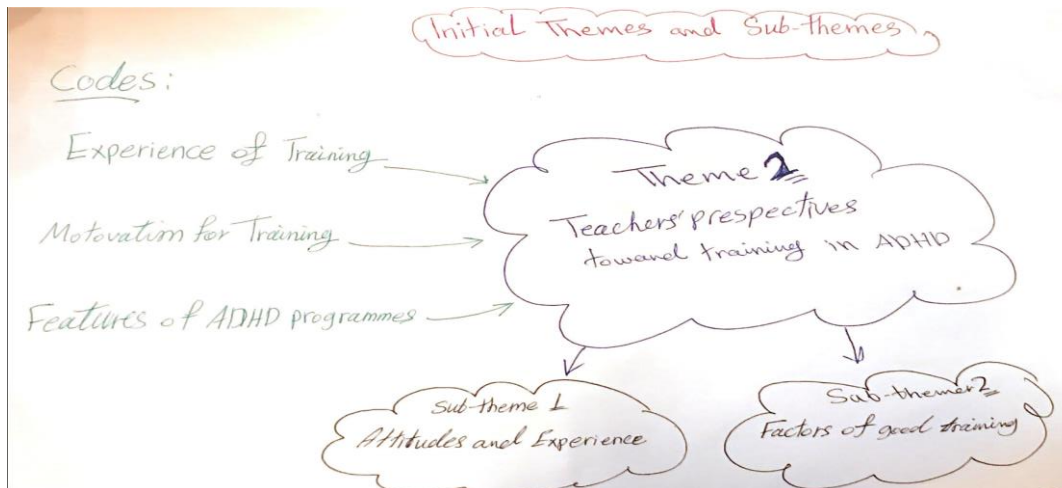 Initial Themes and Sub-themes
Codes:
Experience of Training
Motovation for Training
Features of ADHD programmes
Theme 2
Teachers' prespectives
toward training in ADHD
Sub-theme 1
Attitudes and Experience
Sub-themer2
Factors of good training